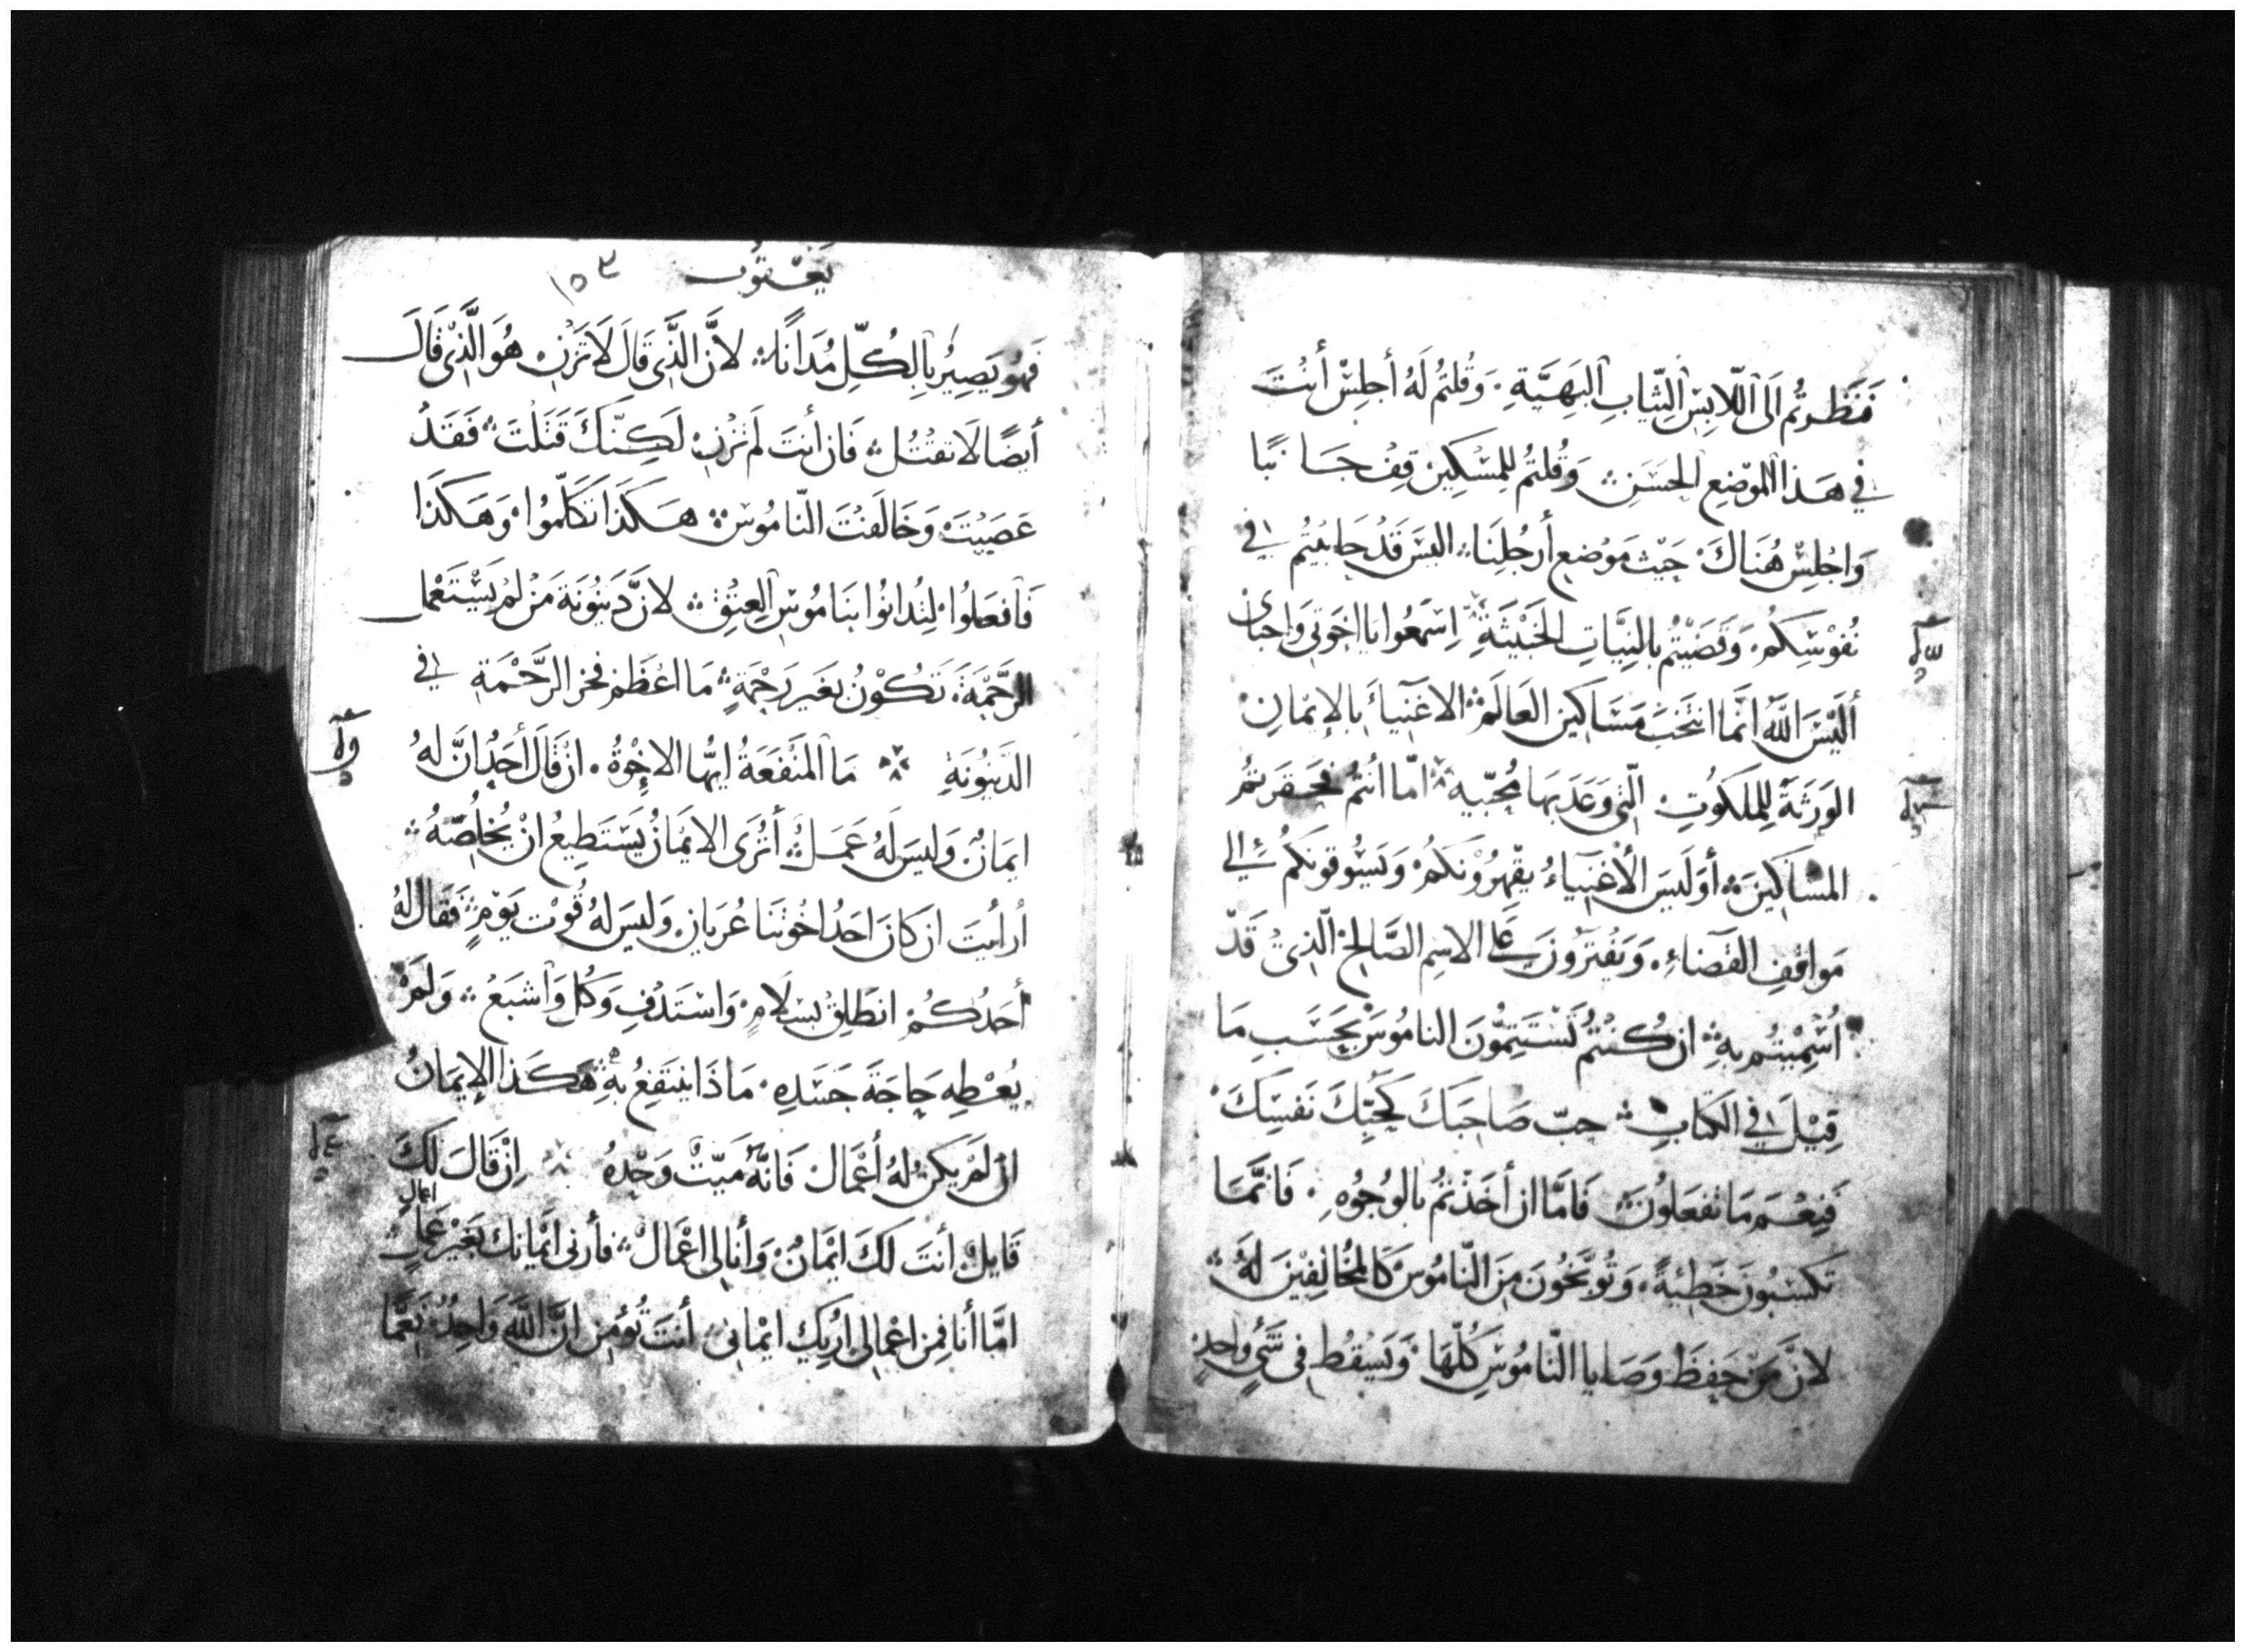 فَنَظَرتُم اَلى اللّابِس الثّيابِ البَهِيَّةِ. وَقُلتُم لَهُ أجلِسْ أنْتَ
في هَذا المَوْضِع الحَسَنِ ۞ وَقُلتُم لِلمِسْكِين قِفْ جَانبًا
وَاجْلِسْ هُنَاكَ حَيْث مَوْضِع أَرجُلِنَا ۞ اليسَ قَدْ حابَيتُم في
نُفوْسِكُم. وَقَضَيْتُم بالنِيَّاتِ الخَبيْثَةِ ۞ اِسْمَعُوا يا اخوَتى وَاحِباى
أَلَيْسَ اللّه انَّما انتَخَبَ مَسَاكين العَالَم ۞ الاغنِيآءَ بالإيْمانِ
الوَرَثَةَ لِلمَلَكُوتِ الّتى وَعَدَ بهَا مُحِبّيهِ ۞ امّا انتُم فَحَقرتُم
المسَاكينَ ۞ أوَلَيسَ الأغنِيآءُ يَقْهَرُوْنَكُمْ وَيَسُوقونَكُم الى
مَواقفِ القَضَاءِ. وَيَفتَرُونَ عَلى الاسِم الصَّالِح الّذِى قَدْ
أُسْمِيْتُم بهِ ۞ ان كُنتُم تَسْتَتِمُّونَ النامُوسَ بحَسَبِ مَا
قِيْلَ في الكتابِ ۞ حِبّ صَاحِبَكَ كَحُبِّكَ نَفسَكَ
فَنِعْمَ مَا تَفعَلُونَ ۞ فَامَّا ان أَخَذْتُم بالوُجُوْهِ. فَانَّمَا
تَكسَبُونَ خَطِيَةً. وَتُوَبَّخُونَ مِنَ النّامُوسَ كَالمُخَالِفِيْنَ لَهُ ۞
لانَّ مَنْ حَفِظَ وَصَايا النّامُوسِ كُلّهَا وَيَسْقُط فى شَىٍ وَاحِدٍ
يَعْقوب
١٥٣
فَهُو يَصِيْرُ بالِكُلِّ مُدَانًا ۞ لانَّ الَّذى قَالَ لَا تَزنِ هُوَ الَّذِى قَالَ
أيضًا لَا تقتُل ۞ فَان أنتَ لَم تَزْنِ لَكِنَّكَ قَتَلْتَ ۞ فَقَدْ
عَصَيْتَ وَخَالَفْتَ النّامُوسَ ۞ هَكَذَا تكَلَّمُوا وَهَكَذَا
فَافعَلوُا لِتُدانُوا بنَامُوسِ العِتقِ ۞ لانَّ دَينُونَةَ مَنْ لَمْ يَسْتَعْمل
الرَّحْمَةَ. تَكُوْنُ بغَيرِ رَحْمَةٍ ۞ مَا اعْظَم فخر الرَّحْمَةِ في
الدَّينُونَةِ ۞ مَا المَنْفَعَةُ ايُّها الاخِوْةُ. ان قَالَ أحَدٌ انَّ لهُ
ايمَانٌ وَليسَ لَهُ عَمَلٌ ۞ أَتُرَى الايمَانُ يَسْتَطِيعُ انْ يُخلِصّهُ ۞
اُرأيتَ ان كَانَ احَدُ اخْوتنَا عُريَان وَليسَ لهُ قُوْت يَوْمٍ ۞ فَقَال لهُ
أَحَدُكُمْ انطَلِقْ بسَلَامٍ وَاسْتَدْفِ وَكُل وَاشبَعْ ۞ وَلَمْ
يُعْطِهِ حَاجَةَ جَسَدِهِ. مَاذَا ينتَفِعُ بهِ ۞ هَكَذا الإيمَانُ
ان لَمْ يَكن لهُ أعْمَال فَانّهُ مَيّتٌ وَحْدهُ ۞ اِنْ قَالَ لَكَ
اعمال
قَايلٌ أنتَ لَكَ ايْمَانٌ وَأنا لى اعْمَالٌ ۞ فأرِنى ايْمانِك بغَيْر عَمَلٍ ۞
امَّا أنا فِمن اعْمالى اُرِيْكَ ايْمانى ۞ أنتَ تُؤمِن انَّ اللّهَ وَاحِدٌ نِعِمَّا